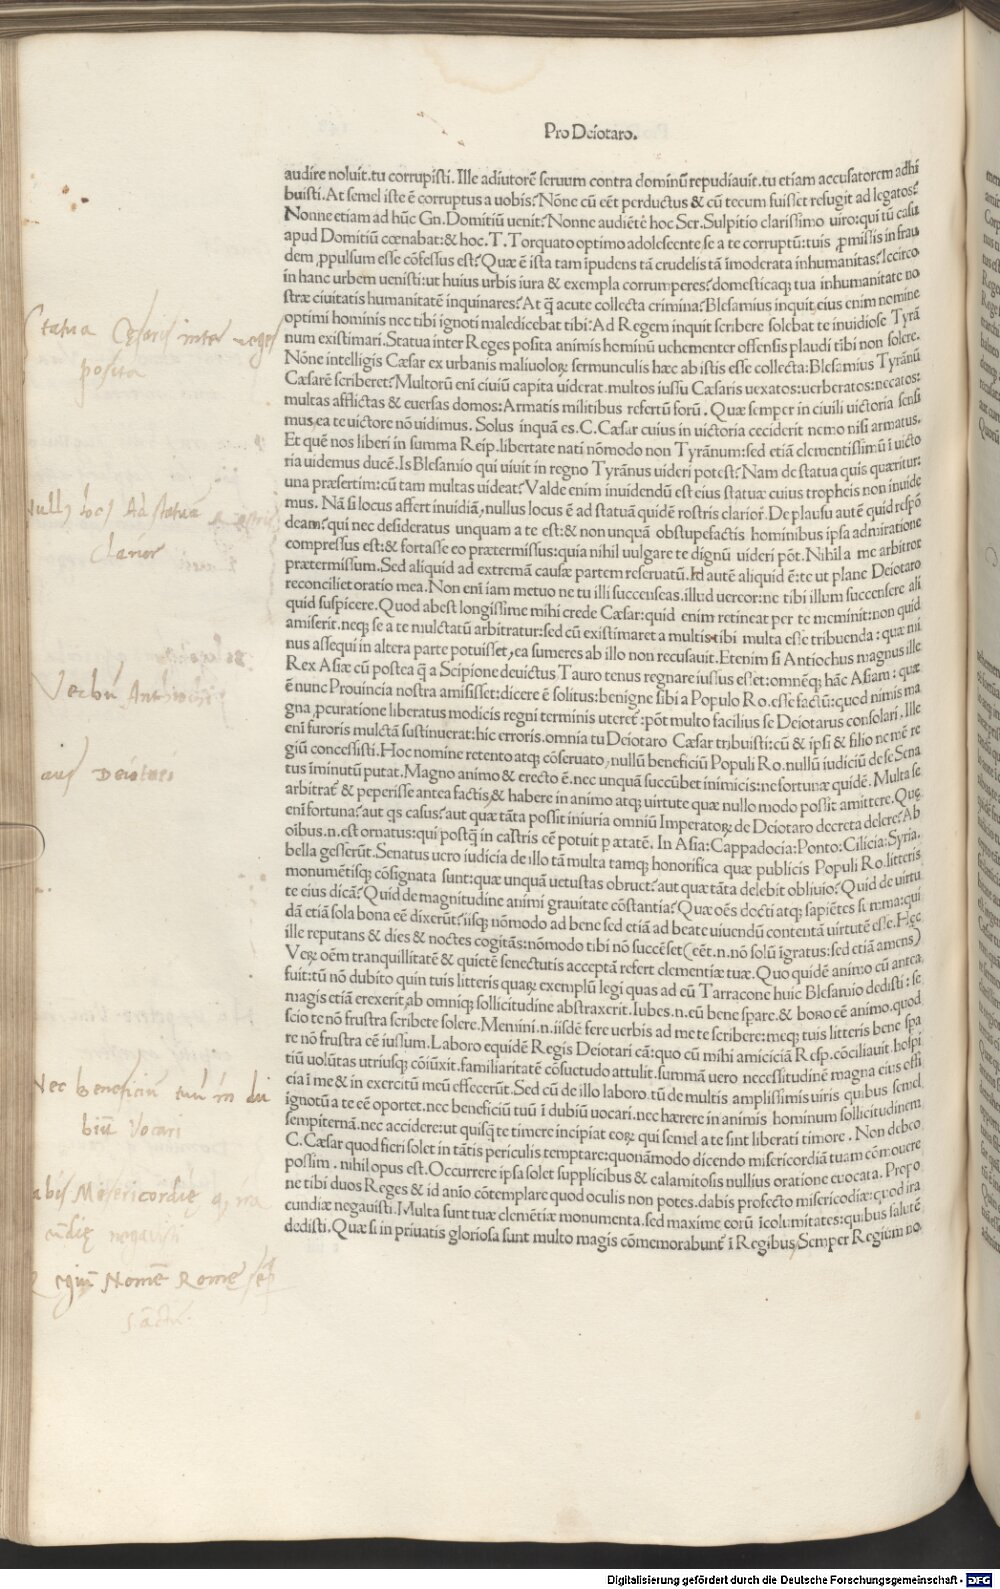 Pro Deiotaro.
audire noluit. tu corrupisti. Ille adiutorē seruum contra dominū repudiauit. tu etiam accusatorem adhi
buisti. At semel iste ē corruptus a uobis? Nōne cū eēt perductus & cū tecum fuisset refugit ad legatos?
Nonne etiam ad hūc Gn. Domitiū uenit? Nonne audiēte hoc Ser. Sulpitio clarissimo uiro: qui tū casu
apud Domitiū cœnabat: & hoc. T. Torquato optimo adolescente, se a te corruptū: tuis ꝓmissis in frau
dem, ꝓpulsum esse cōfessus est? Quæ ē ista tam īpudens tā crudelis tā īmoderata inhumanitas? Iccirco
in hanc urbem uenisti: ut huius urbis iura & exempla corrumperes? domesticaq; tua inhumanitate no
stræ ciuitatis humanitatē inquinares? At q̄ acute collecta crimina? Blesamius inquit, eius enim nomine
optimi hominis nec tibi ignoti maledicebat tibi: Ad Regem inquit scribere solebat te inuidiose Tyrā
num existimari. Statua inter Reges posita animis hominū uehementer offensis plaudi tibi non solere.
Nōne intelligis Cæsar ex urbanis maliuoloꝝ sermunculis hæc ab istis esse collecta: Blesamius Tyrānū
Cæsarē scriberet? Multorū enī ciuiū capita uiderat. multos iussu Cæsaris uexatos: uerberatos: necatos:
multas afflictas & euersas domos: Armatis militibus refertū forū. Quæ semper in ciuili uictoria sensi
mus, ea te uictore nō uidimus. Solus inquā es. C. Cæsar cuius in uictoria ceciderit nemo nisi armatus.
Et quē nos liberi in summa Reip. libertate nati nōmodo non Tyrānum: sed etiā clementissimū ī uicto
ria uidemus ducē. Is Blesamio qui uiuit in regno Tyrānus uideri potest? Nam de statua quis quæritur:
una præsertim: cū tam multas uideat? Valde enim inuidendū est eius statuæ cuius tropheis non inuide
mus. Nā si locus affert inuidiā, nullus locus ē ad statuā quidē rostris clarior. De plausu autē quid respō
deam? qui nec desideratus unquam a te est: & non unquā obstupefactis hominibus ipsa admiratione
compressus est: & fortasse eo prætermissus: quia nihil uulgare te dignū uideri pōt. Nihil a me arbitror
prætermissum. Sed aliquid ad extremā causæ partem reseruatū. Id autē aliquid ē: te ut plane Deiotaro
reconciliet oratio mea. Non enī iam metuo ne tu illi succenseas. illud uereor: ne tibi illum succensere ali
quid suspicere. Quod abest longissime mihi crede Cæsar: quid enim retineat per te meminit: non quid
amiserit. neq; se a te mulctatū arbitratur: sed cū existimaret a multis tibi multa esse tribuenda: quæ mi
nus assequi in altera parte potuisset, ea sumeres ab illo non recusauit. Etenim si Antiochus magnus ille
Rex Asiæ cū postea q̄ a Scipione deuictus Tauro tenus regnare iussus esset: omnēq; hāc Asiam: quæ
ē nunc Prouincia nostra amisisset: dicere ē solitus: benigne sibi a Populo Ro. esse factū: quod nimis ma
gna ꝓcuratione liberatus modicis regni terminis uteretᷣ: pōt multo facilius se Deiotarus consolari. Ille
enī furoris mulctā sustinuerat: hic erroris. omnia tu Deiotaro Cæsar tribuisti: cū & ipsi & filio nemē re
giū concessisti. Hoc nomine retento atq; cōseruato, nullū beneficiū Populi Ro. nullū iudiciū de se Sena
tus īminutū putat. Magno animo & erecto ē. nec unquā succūbet inimicis: ne fortunæ quidē. Multa se
arbitratᷣ & peperisse antea factis, & habere in animo atq; uirtute quæ nullo modo possit amittere. Quę
enī fortuna? aut qs casus? aut quæ tāta possit iniuria omniū Imperatoꝝ de Deiotaro decreta delere? Ab
oībus. n. est ornatus: qui postq̄ in castris eē potuit ꝑ ætatē. In Asia: Cappadocia: Ponto: Cilicia: Syria.
bella gesserūt. Senatus uero iudicia de illo tā multa tamq; honorifica quæ publicis Populi Ro. litteris
monumētisq; cōsignata sunt: quæ unquā uetustas obruet? aut quæ tāta delebit obliuio? Quid de uirtu
te eius dicā? Quid de magnitudine animi grauitate cōstantia? Quæ oēs docti atq; sapiētes summa: qui
dā etiā sola bona eē dixerūt? iisq; nōmodo ad bene sed etiā ad beate uiuendū contentā uirtutē esse. Hęc
ille reputans & dies & noctes cogitās: nōmodo tibi nō succēset (eēt. n. nō solū īgratus: sed etiā amens)
Veꝝ oēm tranquillitatē & quietē senectutis acceptā refert clementiæ tuæ. Quo quidē animo cū antea
fuit: tū nō dubito quin tuis litteris quaꝝ exemplū legi quas ad eū Tarracone huic Blesamio dedisti: se
magis etiā erexerit, ab omniq; sollicitudine abstraxerit. Iubes. n. eū bene sꝑare. & bono eē animo. quod
scio te nō frustra scribere solere. Memini. n. iisdē fere uerbis ad me te scribere: meq; tuis litteris bene spa
re nō frustra eē iussum. Laboro equidē Regis Deiotari cā: quo cū mihi amiciciā Resp. cōciliauit. hospi
tiū uolūtas utriusq; cōiūxit. familiaritatē cōsuetudo attulit. summā uero necessitudinē magna eius offi
cia ī me & in exercitū meū effecerūt. Sed cū de illo laboro. tū de multis amplissimis uiris quibus semel
ignotū a te eē oportet. nec beneficiū tuū ī dubiū uocari. nec hærere in animis hominum sollicitudinem
sempiternā. nec accidere: ut quisq̄ te timere incipiat eoꝝ qui semel a te sint liberati timore. Non debeo
C. Cæsar quod fieri solet in tātis periculis temptare: quonāmodo dicendo misericordiā tuam cōmouere
possim. nihil opus est. Occurrere ipsa solet supplicibus & calamitosis nullius oratione euocata. Propo
ne tibi duos Reges & id aīo cōtemplare quod oculis non potes. dabis profecto misericodiæ: quod ira
cundiæ negauisti. Multa sunt tuæ clemētiæ monumenta. sed maxime eorū īcolumitates: quibus salutē
dedisti. Quæ si in priuatis gloriosa sunt multo magis cōmemorabuntᷣ ī Regibus, Semper Regium no
Statua Cęsaris inter reges
posita
Nullus locus Ad statuā
clarior
Verbū Antiochi
Deiotari
Nec beneficiū tuū in du
biū Vocari
Misericordię q ira
cūdię negauisti
Regiū Nomē Romę sēp
sāctū.
Digitalisierung gefördert durch die Deutsche Forschungsgemeinschaft - DFG